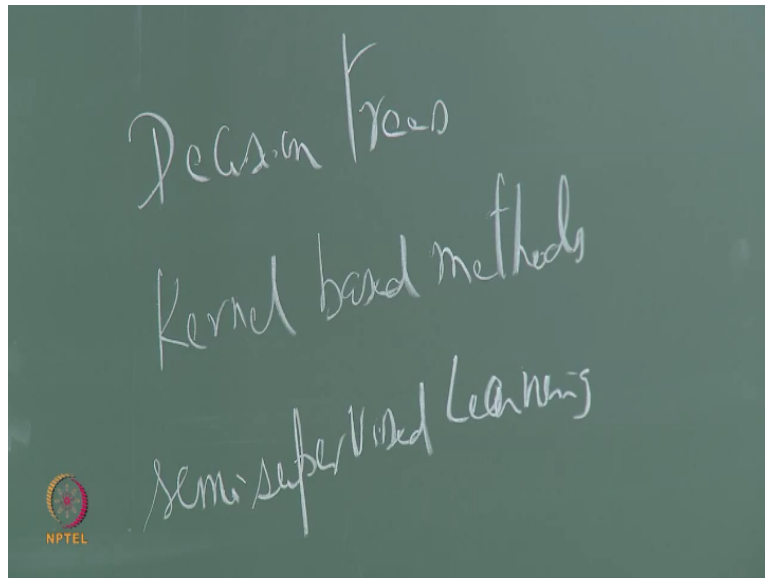 Decision Trees
Kernel based methods
semi supervised Learning
NPTEL